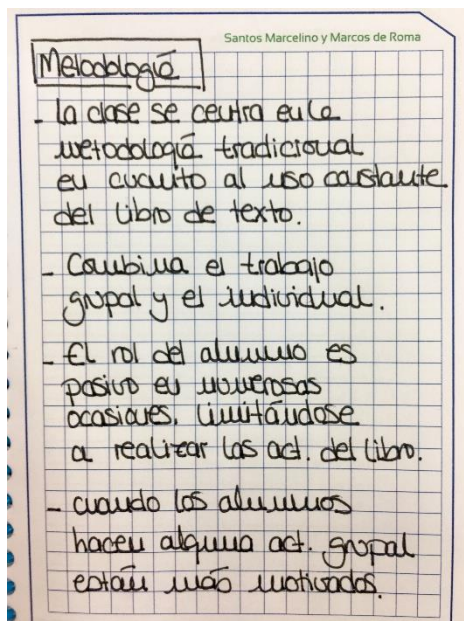 Santos Marcelino y Marcos de Roma
Metodología
- La clase se centra en la
metodología tradicional
en cuanto al uso constante
del libro de texto.
- Combina el trabajo
grupal y el individual.
- El rol del alumno es
pasivo en numerosas
ocasiones. Limitándose
a realizar las act. del libro.
- cuando los alumnos
hacen alguna act. grupal
están más motivados.